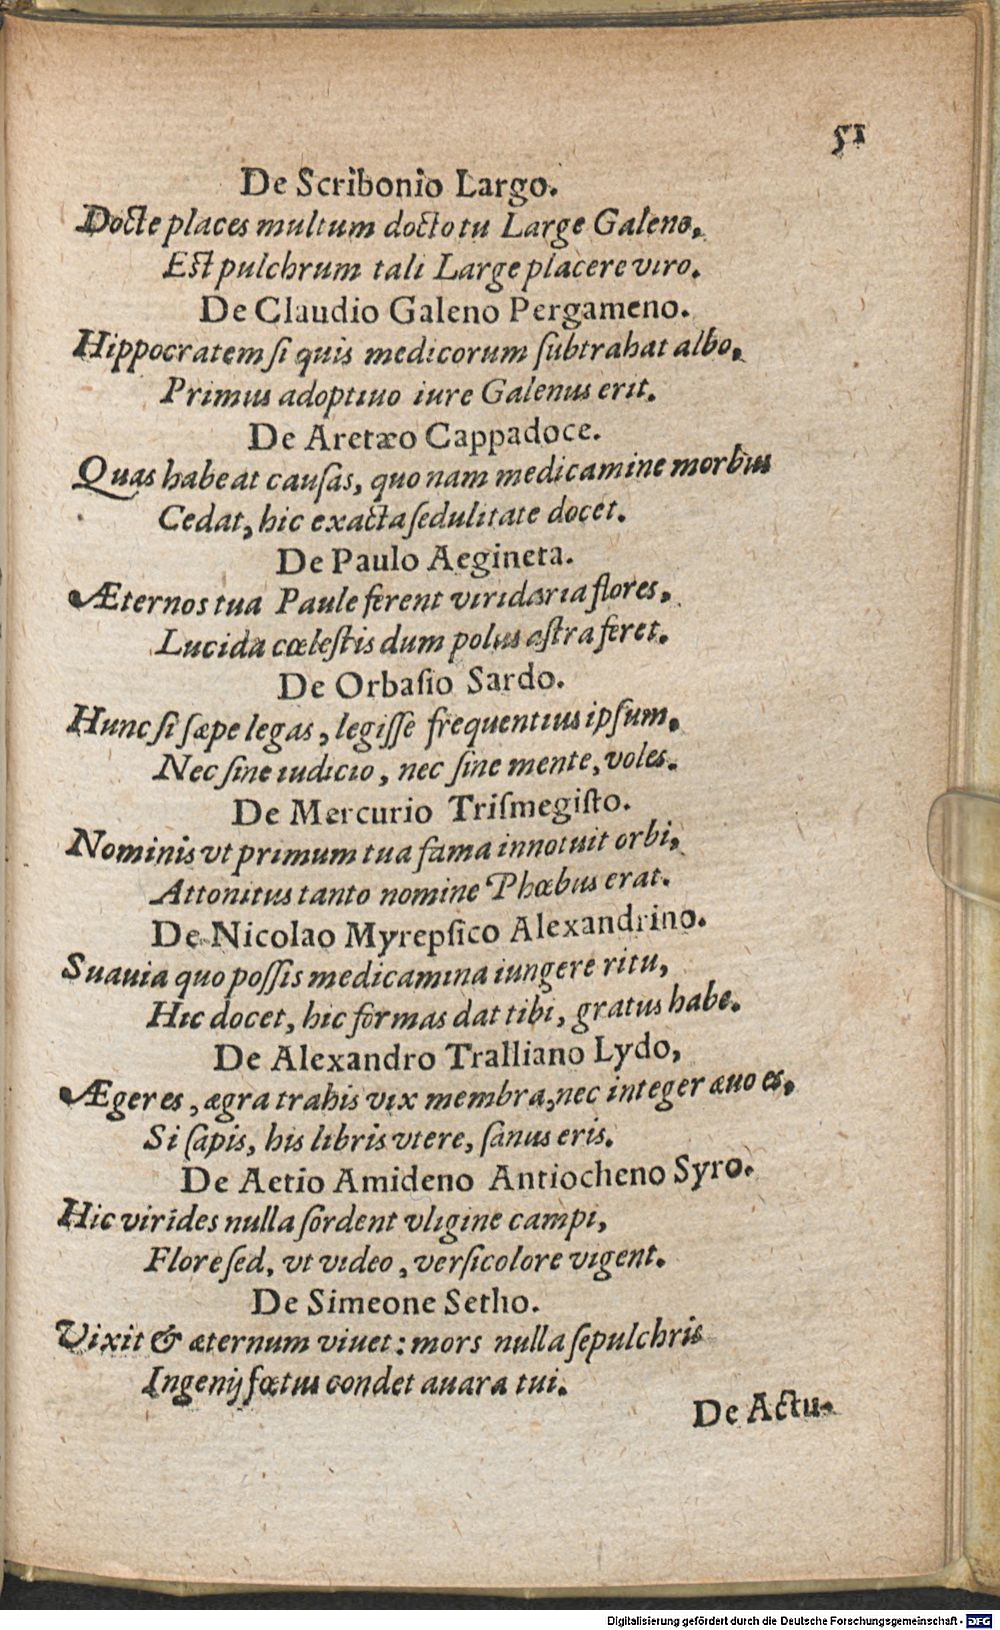 51
De Scribonio Largo.
Docte places multum docto tu Large Galeno,
Est pulchrum tali Large placere viro.
De Claudio Galeno Pergameno.
Hippocratem ſi quis medicorum ſubtrahat albo,
Primus adoptiuo iure Galenus erit.
De Aretæo Cappadoce.
Quas habeat cauſas, quo nam medicamine morbus
Cedat, hic exacta ſedulitate docet.
De Paulo Aegineta.
Æternos tua Paule ferent viridaria flores,
Lucida cœleſtis dum polus aſtra feret.
De Orbaſio Sardo.
Hunc ſi ſæpe legas, legiſſe frequentius ipſum,
Nec ſine iudicio, nec ſine mente, voles.
De Mercurio Triſmegiſto.
Nominis vt primum tua fama innotuit orbi,
Attonitus tanto nomine Phœbus erat.
De Nicolao Myrepſico Alexandrino.
Suauia quo poſſis medicamina iungere ritu,
Hic docet, hic formas dat tibi, gratus habe.
De Alexandro Tralliano Lydo,
Æger es, ægra trahis vix membra, nec integer æuo es,
Si ſapis, his libris vtere, ſanus eris.
De Aetio Amideno Antiocheno Syro.
Hic virides nulla ſordent vligine campi,
Flore ſed, vt video, verſicolore vigent.
De Simeone Setho.
Vixit & æternum viuet: mors nulla ſepulchris
Ingenij fœtus condet auara tui.
De Actu-
Digitalisierung gefördert durch die Deutsche Forschungsgemeinschaft - DFG